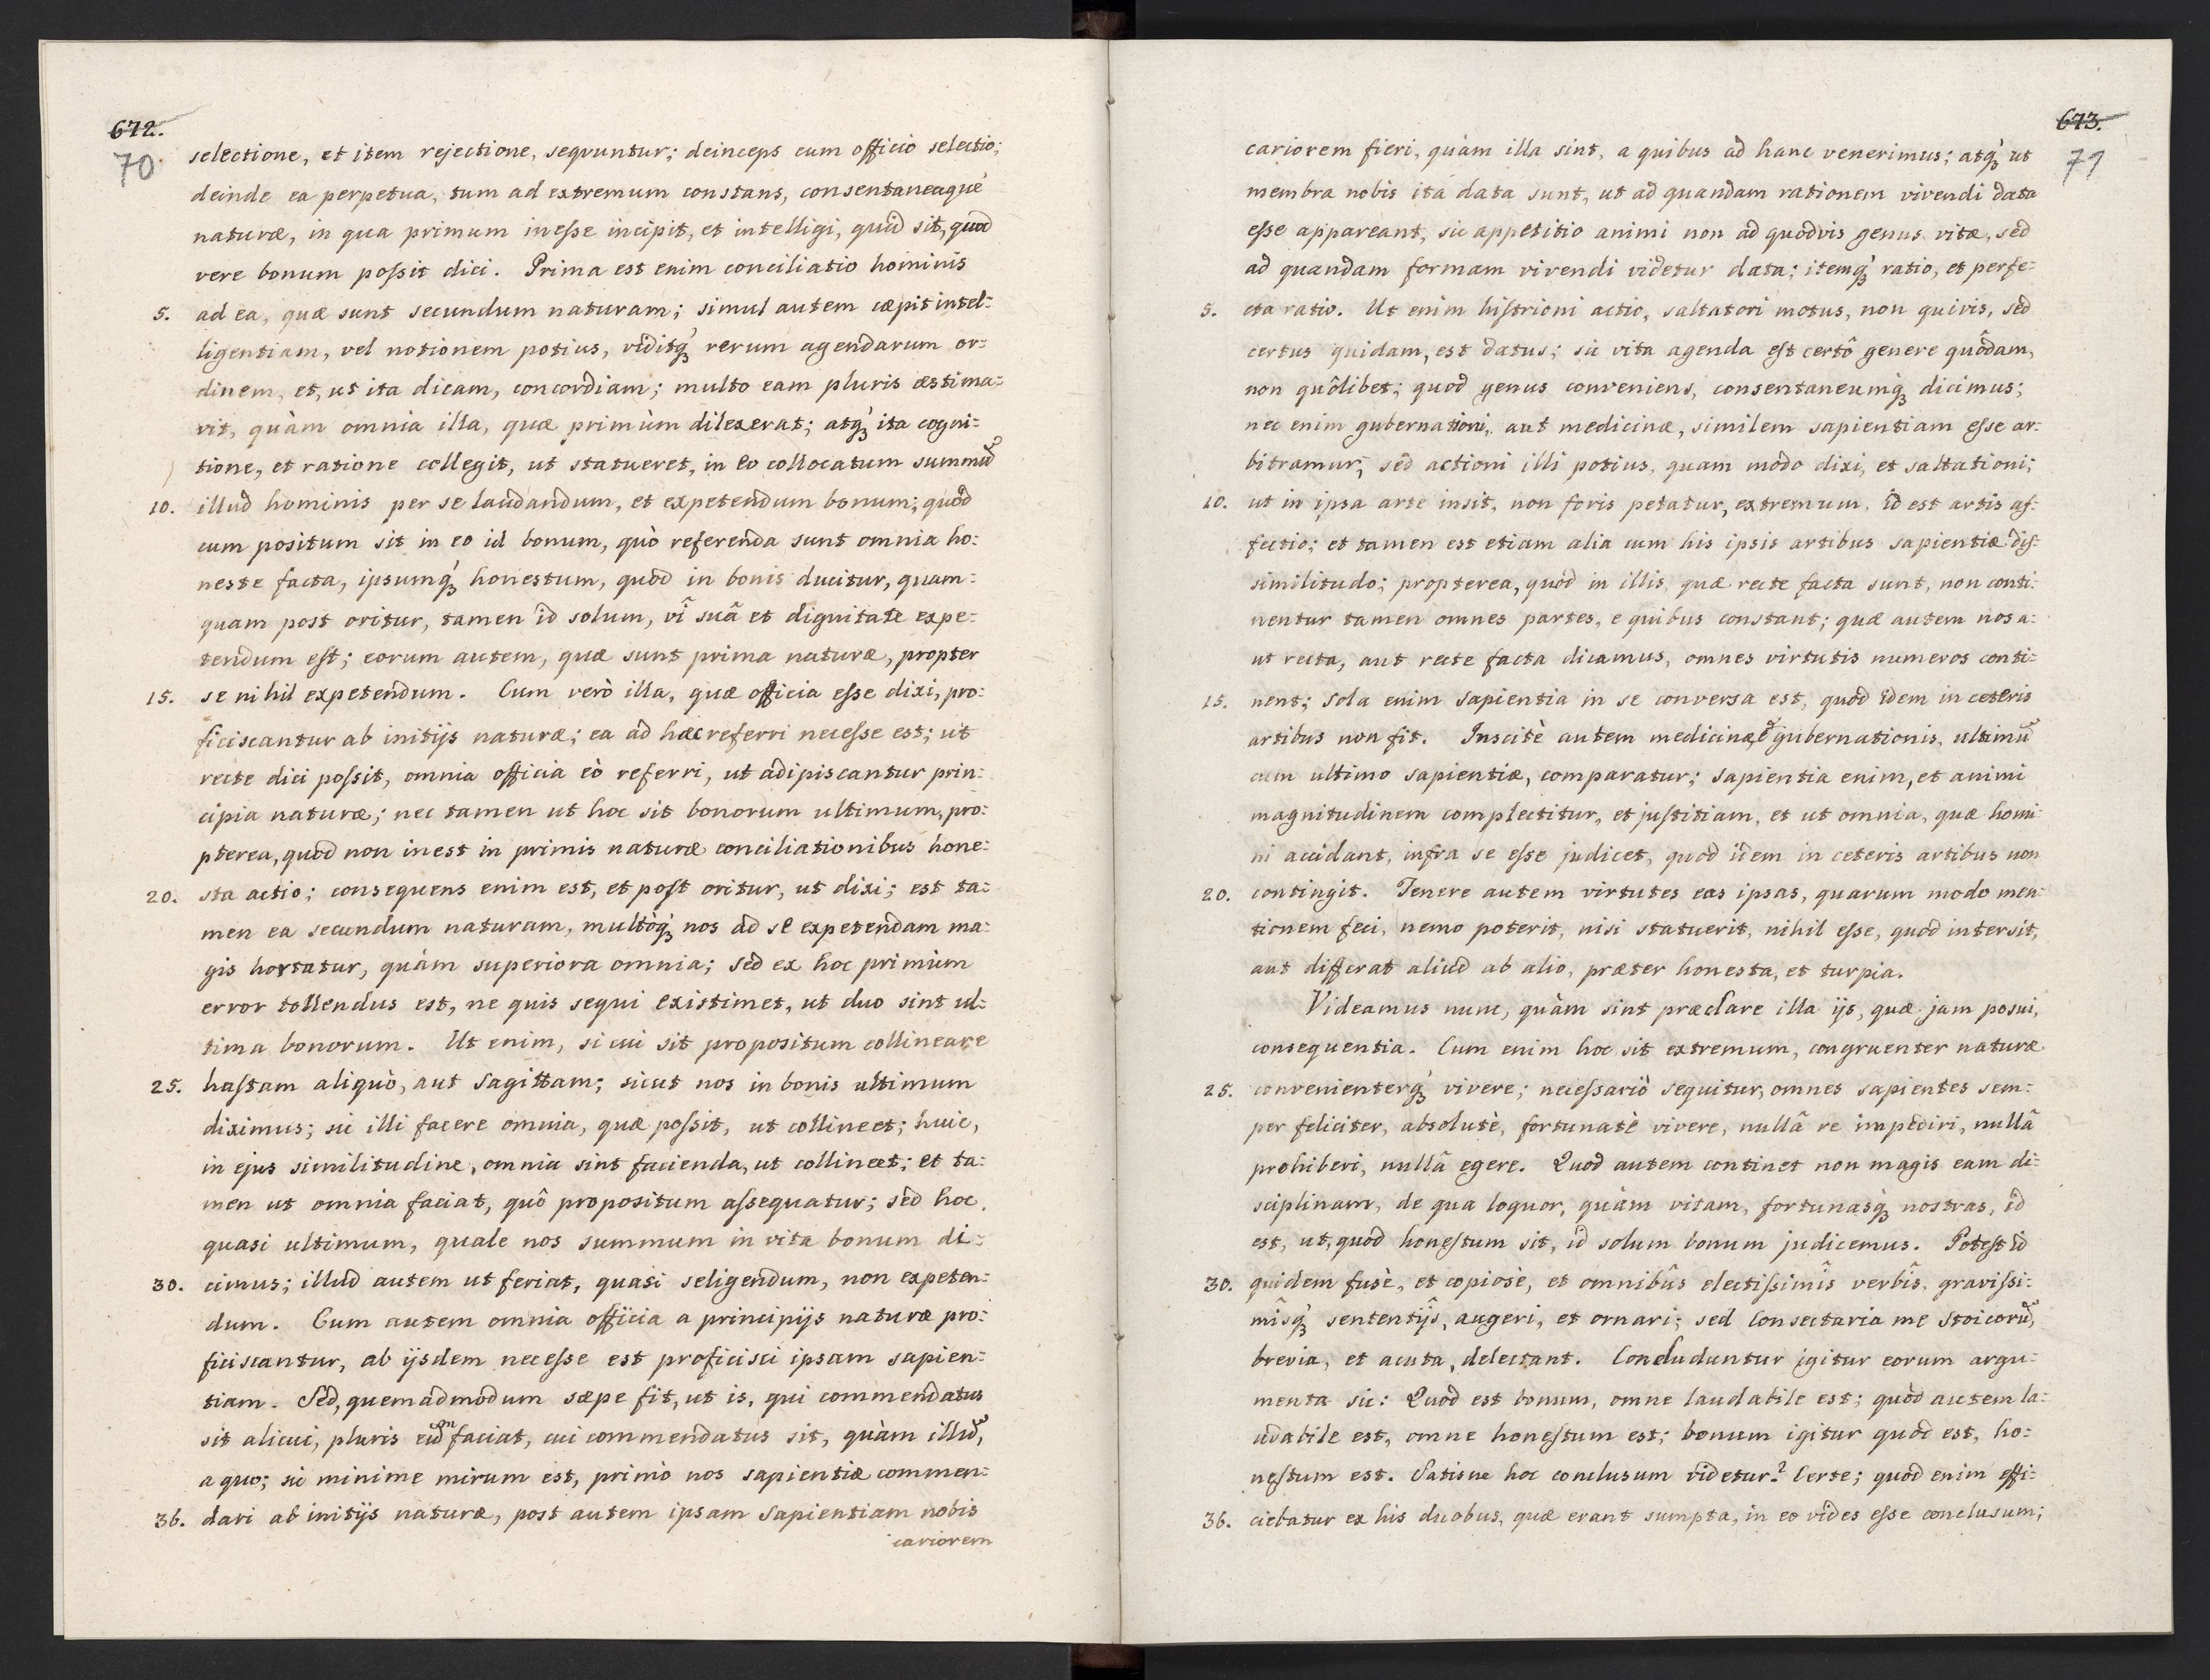 672.
70
selectione, et item rejectione, sequuntur; deinceps cum officio selectio;
deinde ea perpetua, tum ad extremum constans, consentaneaquè
naturæ, in qua primum inesse incipit, et intelligi, quid sit, quod
vere bonum possit dici. Prima est enim conciliatio hominis
5. ad ea, quæ sunt secundum naturam; simul autem cæpit intel=
ligentiam, vel notionem potius, viditq́ꝫ rerum agendarum or=
dinem, et, ut ita dicam, concordiam; multo eam pluris æstima=
vit, quàm omnia illa, quæ primùm dilexerat; atq́ꝫ ita cogni=
tione, et ratione collegit, ut statueret, in eo collocatum summũ
10. illud hominis per se laudandum, et expetendum bonum; quod
cum positum sit in eo id bonum, quò referenda sunt omnia ho=
neste facta, ipsumq́ꝫ honestum, quod in bonis ducitur, quam=
quam post oritur, tamen id solum, vî suâ et dignitate expe=
tendum est; eorum autem, quæ sunt prima naturæ, propter
15. se nihil expetendum. Cum verò illa, quæ officia esse dixi, pro=
ficiscantur ab initijs naturæ; ea ad hæc referri necesse est; ut
recte dici possit, omnia officia eò referri, ut adipiscantur prin=
cipia naturæ; nec tamen ut hoc sit bonorum ultimum, pro=
pterea, quod non inest in primis naturæ conciliationibus hone=
20. sta actio; consequens enim est, et post oritur, ut dixi; est ta=
men ea secundum naturam, multòq́ꝫ nos ad se expetendam ma=
gis hortatur, quàm superiora omnia; sed ex hoc primùm
error tollendus est, ne quis sequi existimet, ut duo sint ul=
tima bonorum. Ut enim, si cui sit propositum collineare
25. hastam aliquò, aut sagittam; sicut nos in bonis ultimum
diximus; sic illi facere omnia, quæ possit, ut collineet; huic,
in ejus similitudine, omnia sint facienda, ut collineet; et ta=
men ut omnia faciat, quô propositum assequatur; sed hoc,
quasi ultimum, quale nos summum in vita bonum di=
30. cimus; illud autem ut feriat, quasi seligendum, non expeten=
dum. Cum autem omnia officia a principijs naturæ pro=
ficiscantur, ab ijsdem necesse est proficisci ipsam sapien=
tiam. Sed, quemadmodum sæpe fit, ut is, qui commendatus
sit alicui, pluris eum faciat, cui commendatus sit, quàm illũ,
a quo; sic minime mirum est, primò nos sapientiæ commen=
36. dari ab initijs naturæ, post autem ipsam sapientiam nobis
cariorem
673.
71
cariorem fieri, quàm illa sint, a quibus ad hanc venerimus; atq́ꝫ ut
membra nobis ita data sunt, ut ad quandam rationem vivendi data
esse appareant, sic appetitio animi non ad quodvis genus vitæ, sed
ad quandam formam vivendi videtur data; itemq́ꝫ ratio, et perfe=
5. cta ratio. Ut enim histrioni actio, saltatori motus, non quivis, sed
certus quidam, est datus; sic vita agenda est certô genere quôdam,
non quôlibet; quod genus conveniens, consentaneumq́ꝫ dicimus;
nec enim gubernationi, aut medicinæ, similem sapientiam esse ar=
bitramur; sed actioni illi potius, quam modo dixi, et saltationi;
10. ut in ipsa arte insit, non foris petatur, extremum, id est artis ef=
fectio; et tamen est etiam alia cum his ipsis artibus sapientiæ dis=
similitudo; propterea, quòd in illis, quæ recte facta sunt, non conti=
nentur tamen omnes partes, e quibus constant; quæ autem nos a=
ut recta, aut recte facta dicamus, omnes virtutis numeros conti=
15. nent; sola enim sapientia in se conversa est, quod idem in ceteris
artibus non fit. Inscitè autem medicinæ, & gubernationis, ultimũ
cum ultimo sapientiæ, comparatur; sapientia enim, et animi
magnitudinem complectitur, et justitiam, et ut omnia, quæ homi=
ni accidant, infra se esse judicet, quod idem in ceteris artibus non
20. contingit. Tenere autem virtutes eas ipsas, quarum modo men=
tionem feci, nemo poterit, nisi statuerit, nihil esse, quod intersit,
aut differat aliud ab alio, præter honesta, et turpia.
Videamus nunc, quàm sint præclare illa ijs, quæ jam posui,
consequentia. Cum enim hoc sit extremum, congruenter naturæ
25. convenienterq́ꝫ vivere; necessariò sequitur, omnes sapientes sem=
per feliciter, absolutè, fortunatè vivere, nullâ re impediri, nullâ
prohiberi, nullâ egere. Quod autem continet non magis eam di=
sciplinam, de qua loquor, quàm vitam, fortunasq́ꝫ nostras, id
est, ut, quod honestum sit, id solum bonum judicemus. Potest id
30. quidem fusè, et copiosè, et omnibûs electissimîs verbîs, gravissi=
mîsq́ꝫ sententijs, augeri, et ornari; sed Consectaria me Stoicorũ,
brevia, et acuta, delectant. Concluduntur igitur eorum argu=
menta sic: Quod est bonum, omne laudabile est; quòd autem la=
udabile est, omne honestum est; bonum igitur quod est, ho=
nestum est. Satisne hoc conclusum videtur? Certe; quod enim effi=
36. ciebatur ex his duobus, quæ erant sumpta, in eo vides esse conclusum;